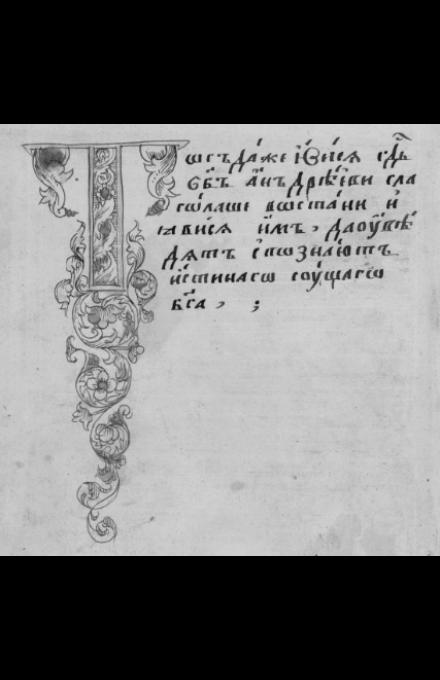 Тѡгъда́же ꙗ҆ви́ся гдⷭ҇ь
бг҃ъ а҆нъдрѣ́еви гла
гѡ́лаше вѡста́ни и҆
ꙗвися и҆мъ, да оу҆вѣ́
дятъ і҆ пѡзна́ютъ
и҆́стинагѡ соу́щагѡ
бг҃а , ;